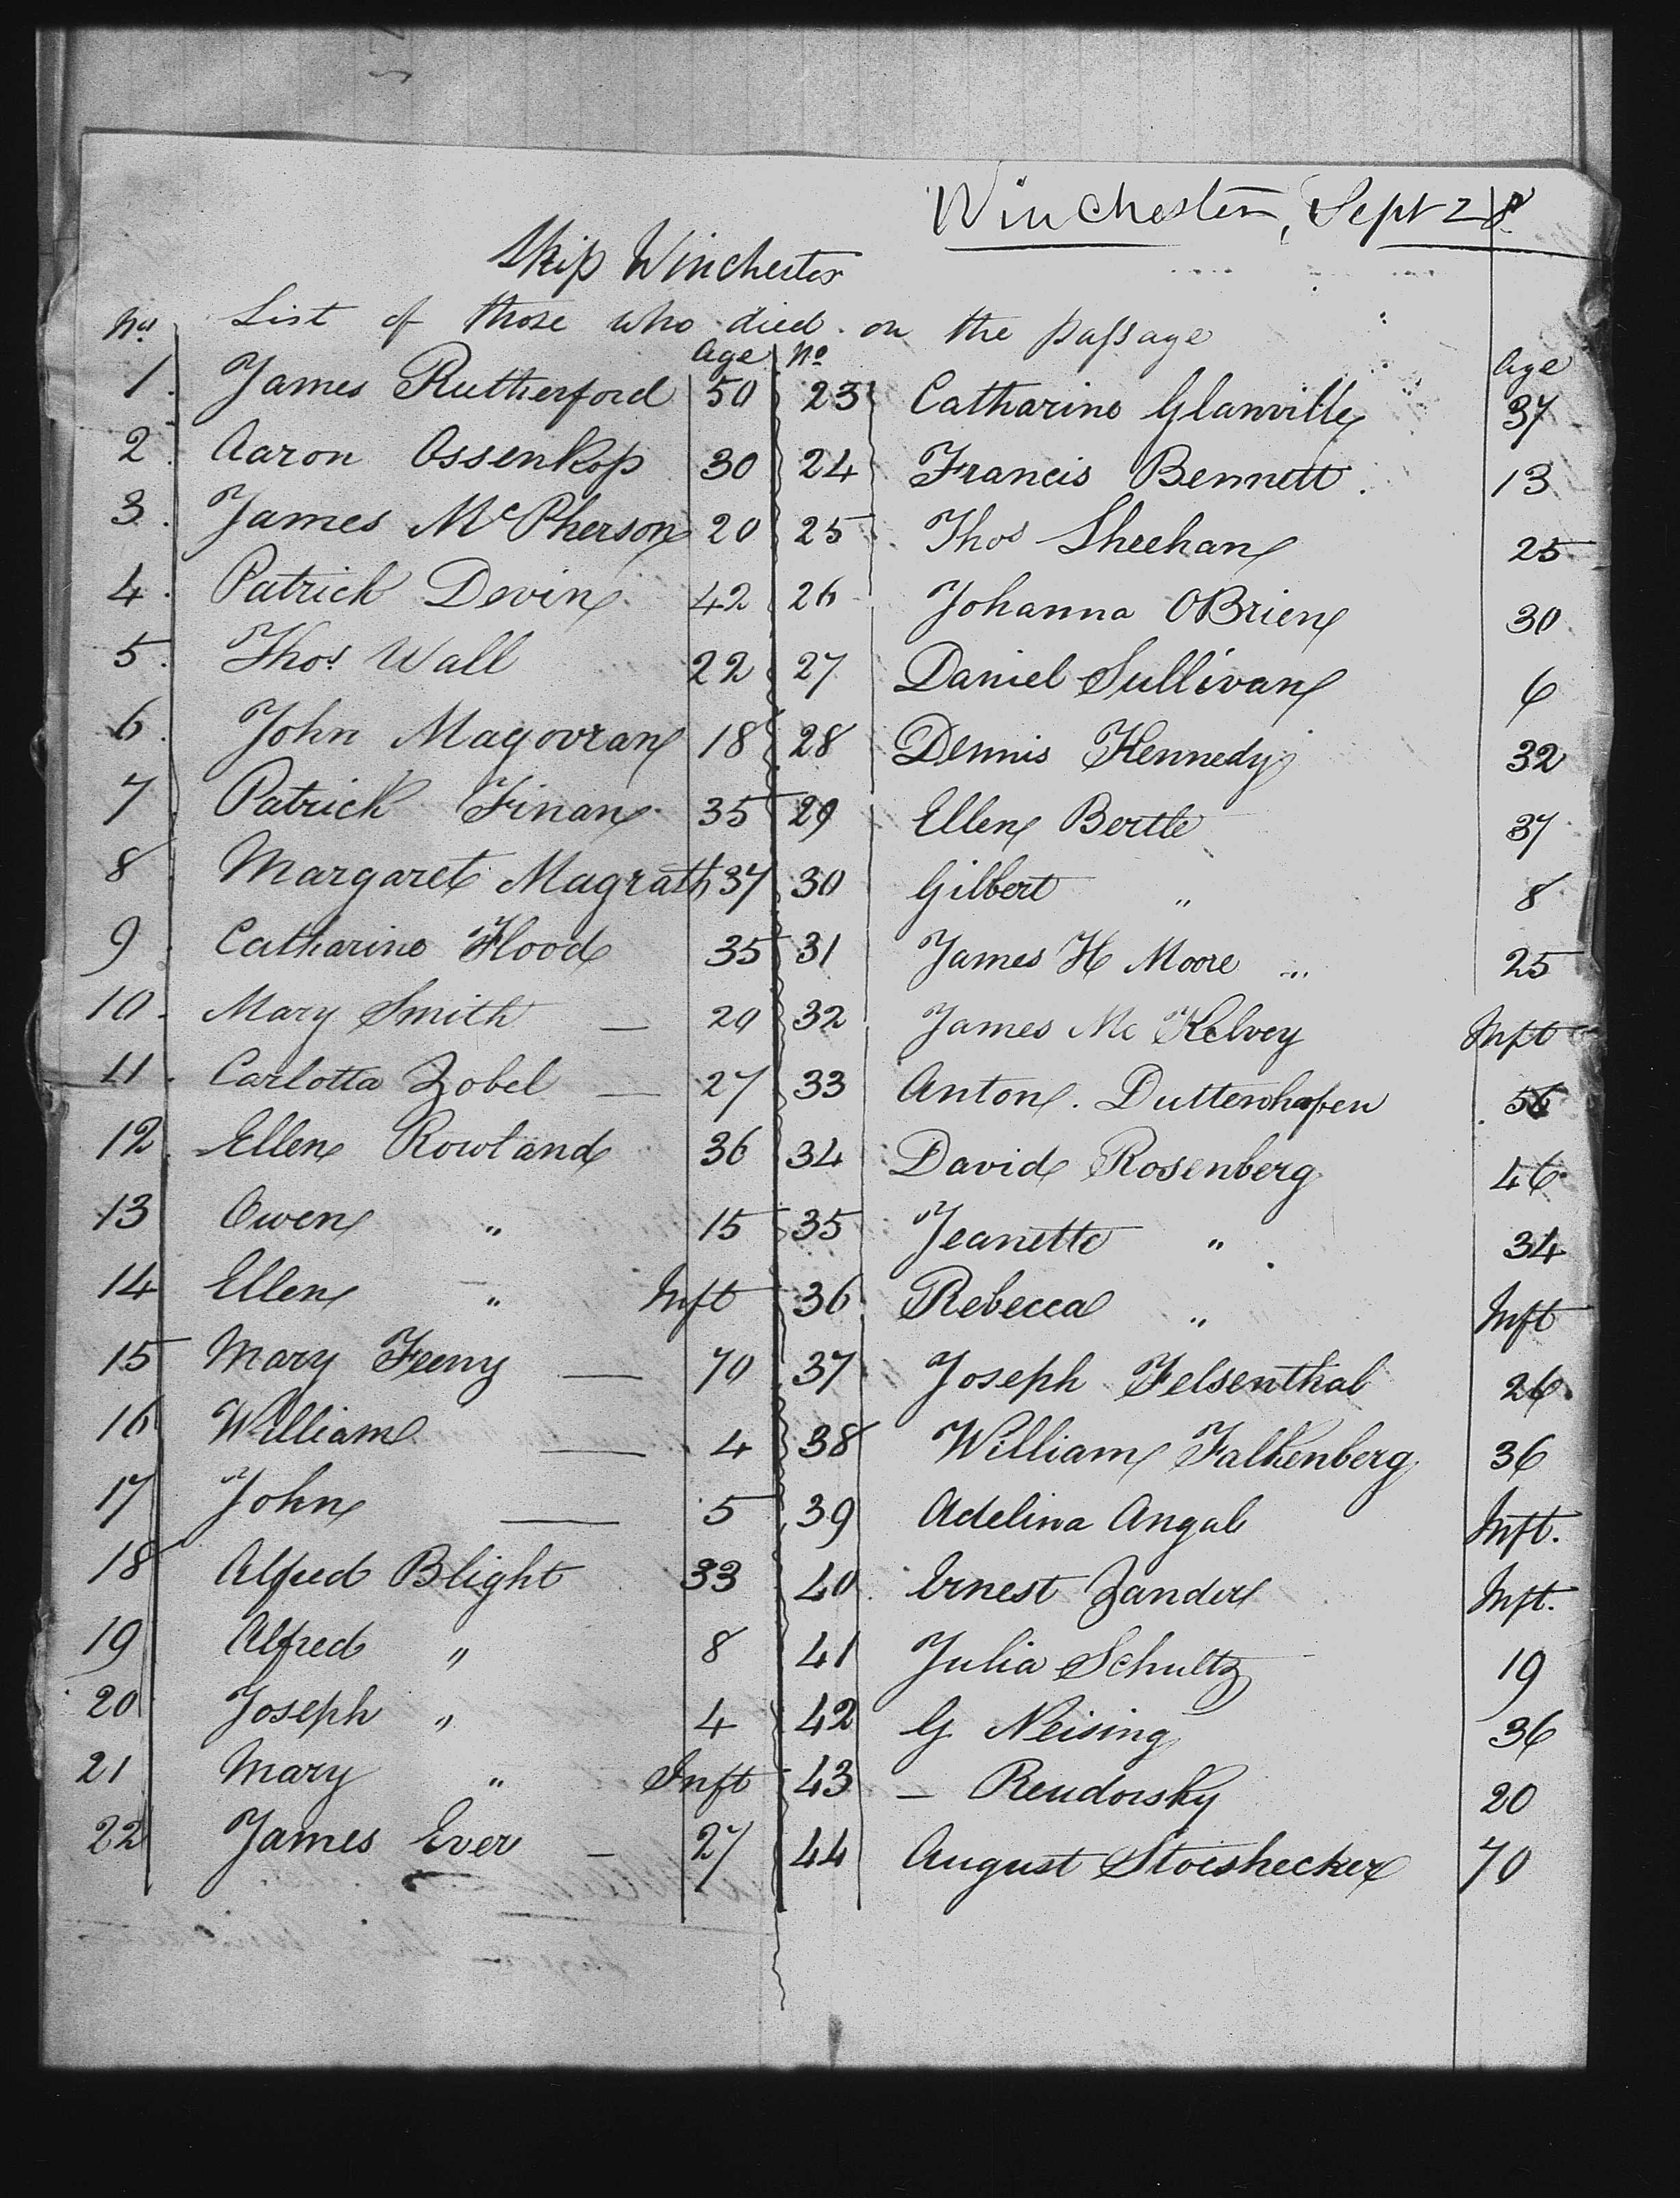 Winchester, Sept 28
Ship Winchester
List of those who died on the passage
No. Age
1 James Rutherford 50
2 Aaron Ossenkop 30
3 James McPherson 20
4 Patrick Devin 42
5 Thos Wall 22
6 John Magovran 18
7 Patrick Finan 35
8 Margaret Magrath 37
9 Catharine Flood 35
10 Mary Smith — 29
11 Carlotta Zobel — 27
12 Ellen Rowland 36
13 Owen " 15
14 Ellen " Inft
15 Mary Feeny — 70
16 William — 4
17 John — 5
18 Alfred Blight 33
19 Alfred " 8
20 Joseph " 4
21 Mary " Inft
22 James Ever — 27
No Age
23 Catharine Glanville 37
24 Francis Bennett 13
25 Thos Sheehan 25
26 Johanna OBrien 30
27 Daniel Sullivan 6
28 Dennis Kennedy 32
29 Ellen Bertle 37
30 Gilbert " 8
31 James H Moore 25
32 James Mc Kelvey Inft
33 Anton Duttenhofen
34 David Rosenberg 46
35 Jeanette " 34
36 Rebecca " Inft
37 Joseph Felsenthal 26
38 William Falkenberg 36
39 Adelina Angal Inft.
40 Ernest Zander Inft.
41 Julia Schultz 19
42 G Neising 36
43 — 20
44 August 70